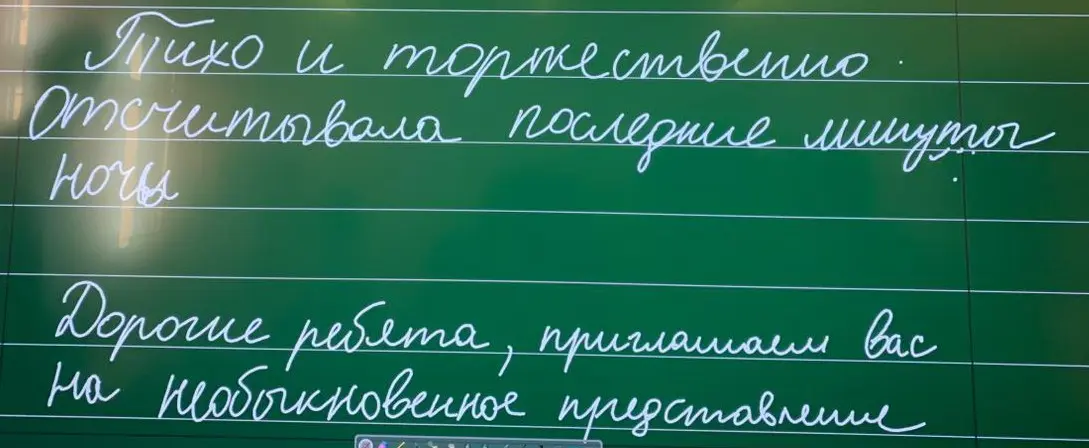 Тихо и торжественно
Отсчитывала последние минуты
ночи
Дорогие ребята, приглашаем вас
на необыкновенное представление